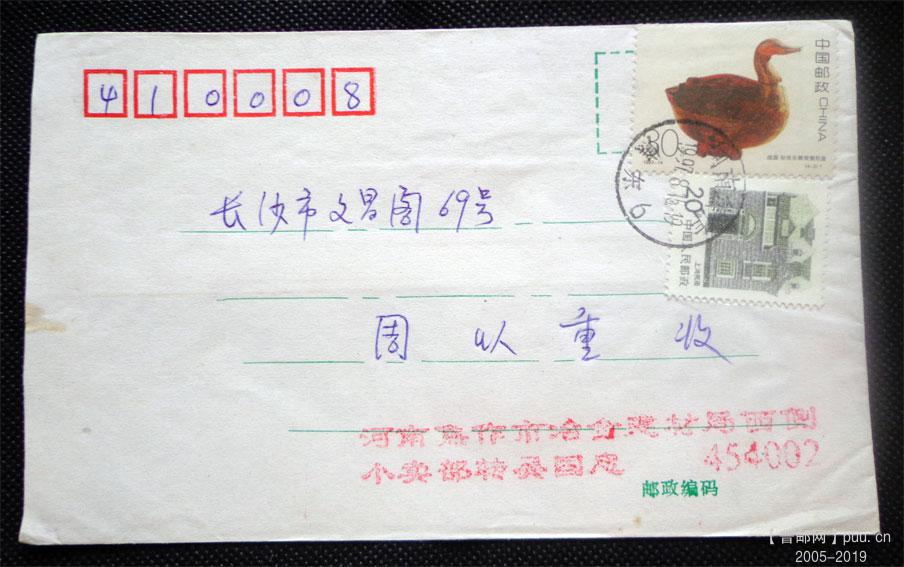 410008
中国邮政 CHINA
30
长沙市文昌阁69号
20
中国人民邮政
上海民居
周以重 收
河南焦作市冶金建材局西侧
小卖部转娄国忠 454002
邮政编码
【晋邮网】puu.cn
2005-2019